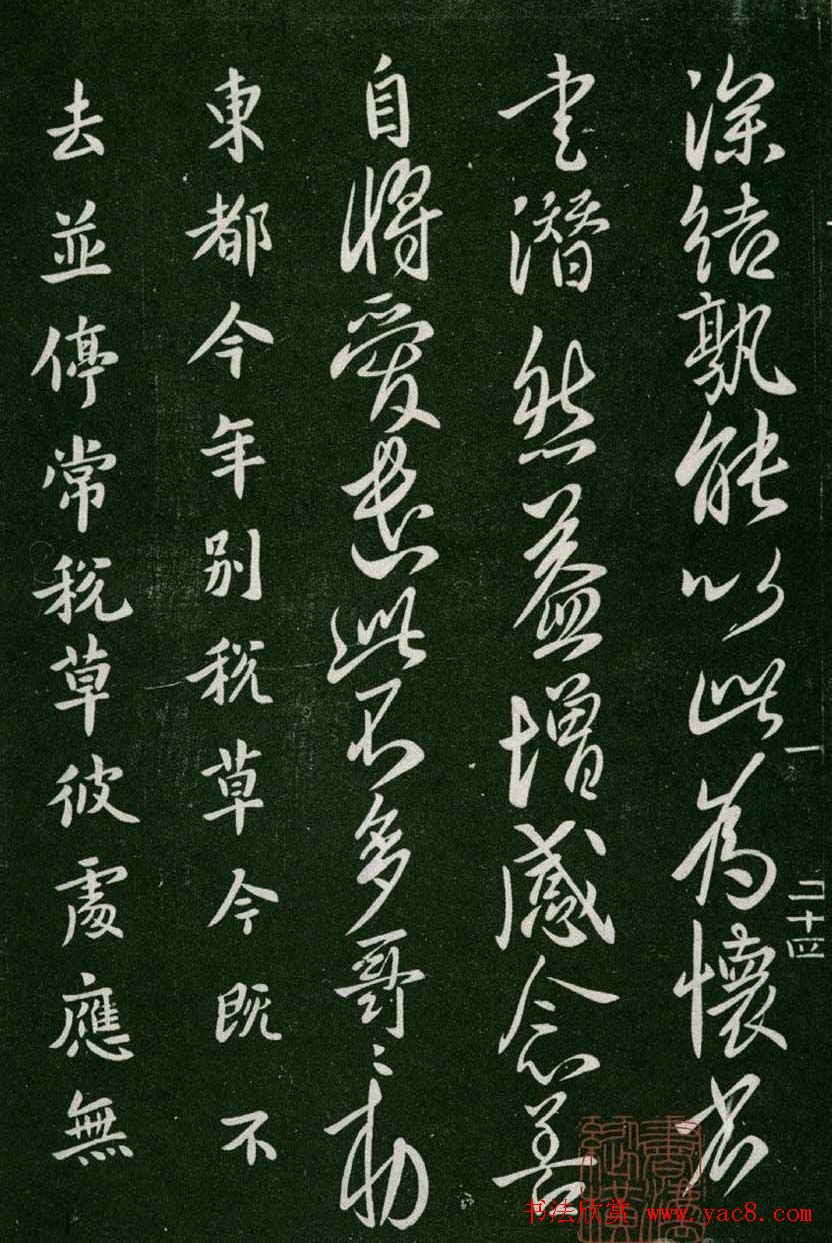 深結孰能以此為懷省
書潛然益增感念善
自將愛遣此不多哥〻敕
東都今年別稅草今既不
去並停常稅草彼處應無
一 二十四
书法欣赏 www.yac8.com